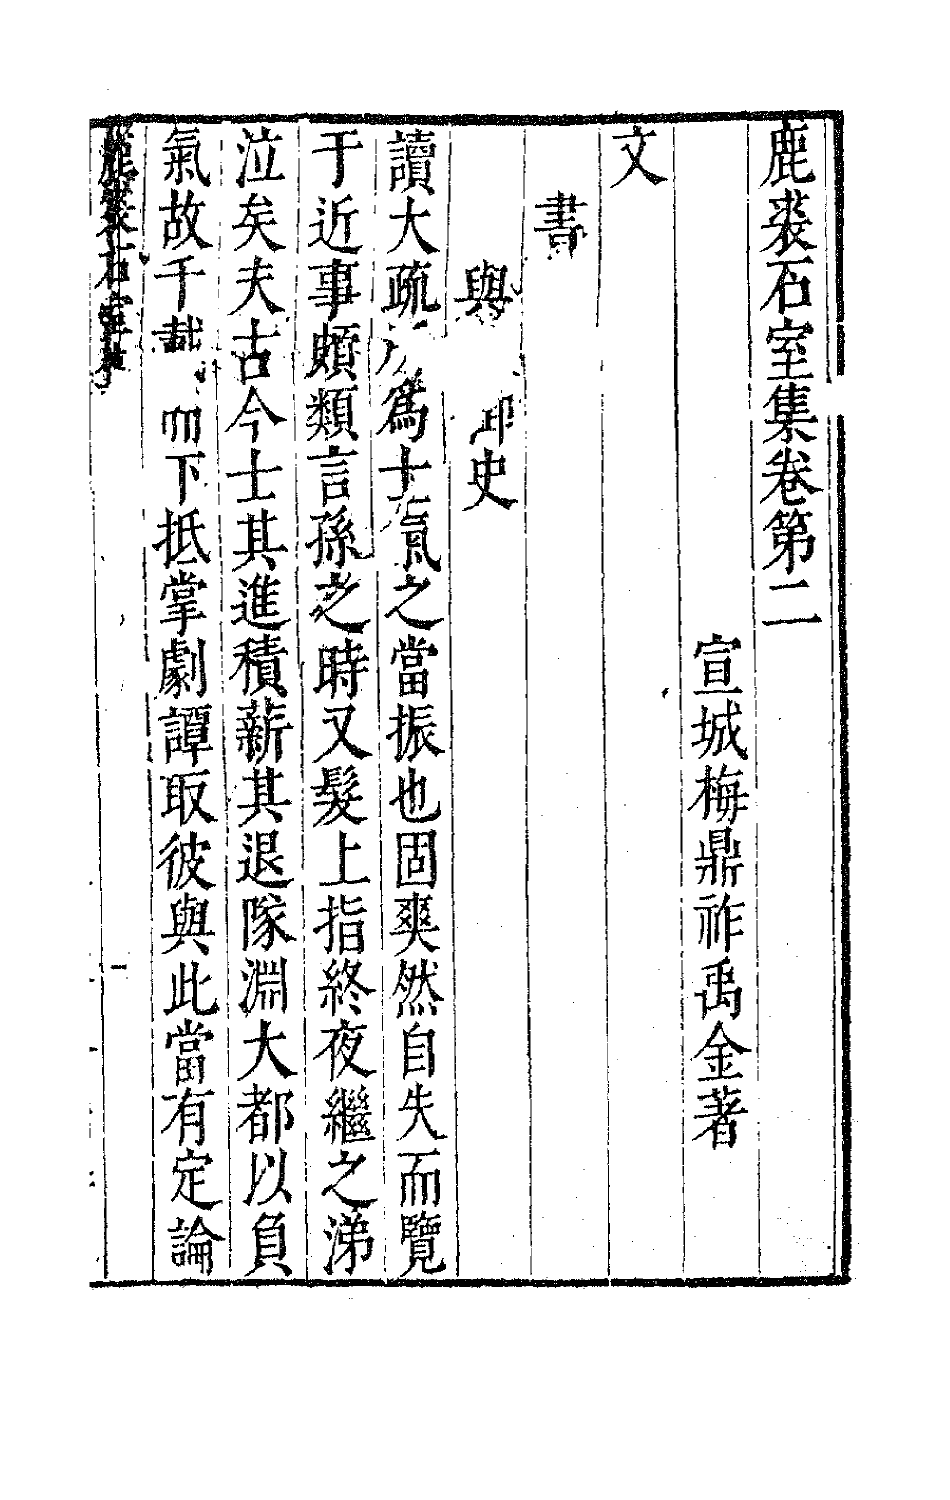 鹿裘石室集卷第二
宣城梅鼎祚禹金著
文
書
與 史
讀大疏 爲士氣之當振也固爽然自失而覽
于近事頗類言孫之時又髮上指終夜繼之涕
泣矣夫古今士其進積薪其退隊淵大都以負
氣故千載而下抵掌劇譚取彼與此當有定論
鹿裘石室集
一